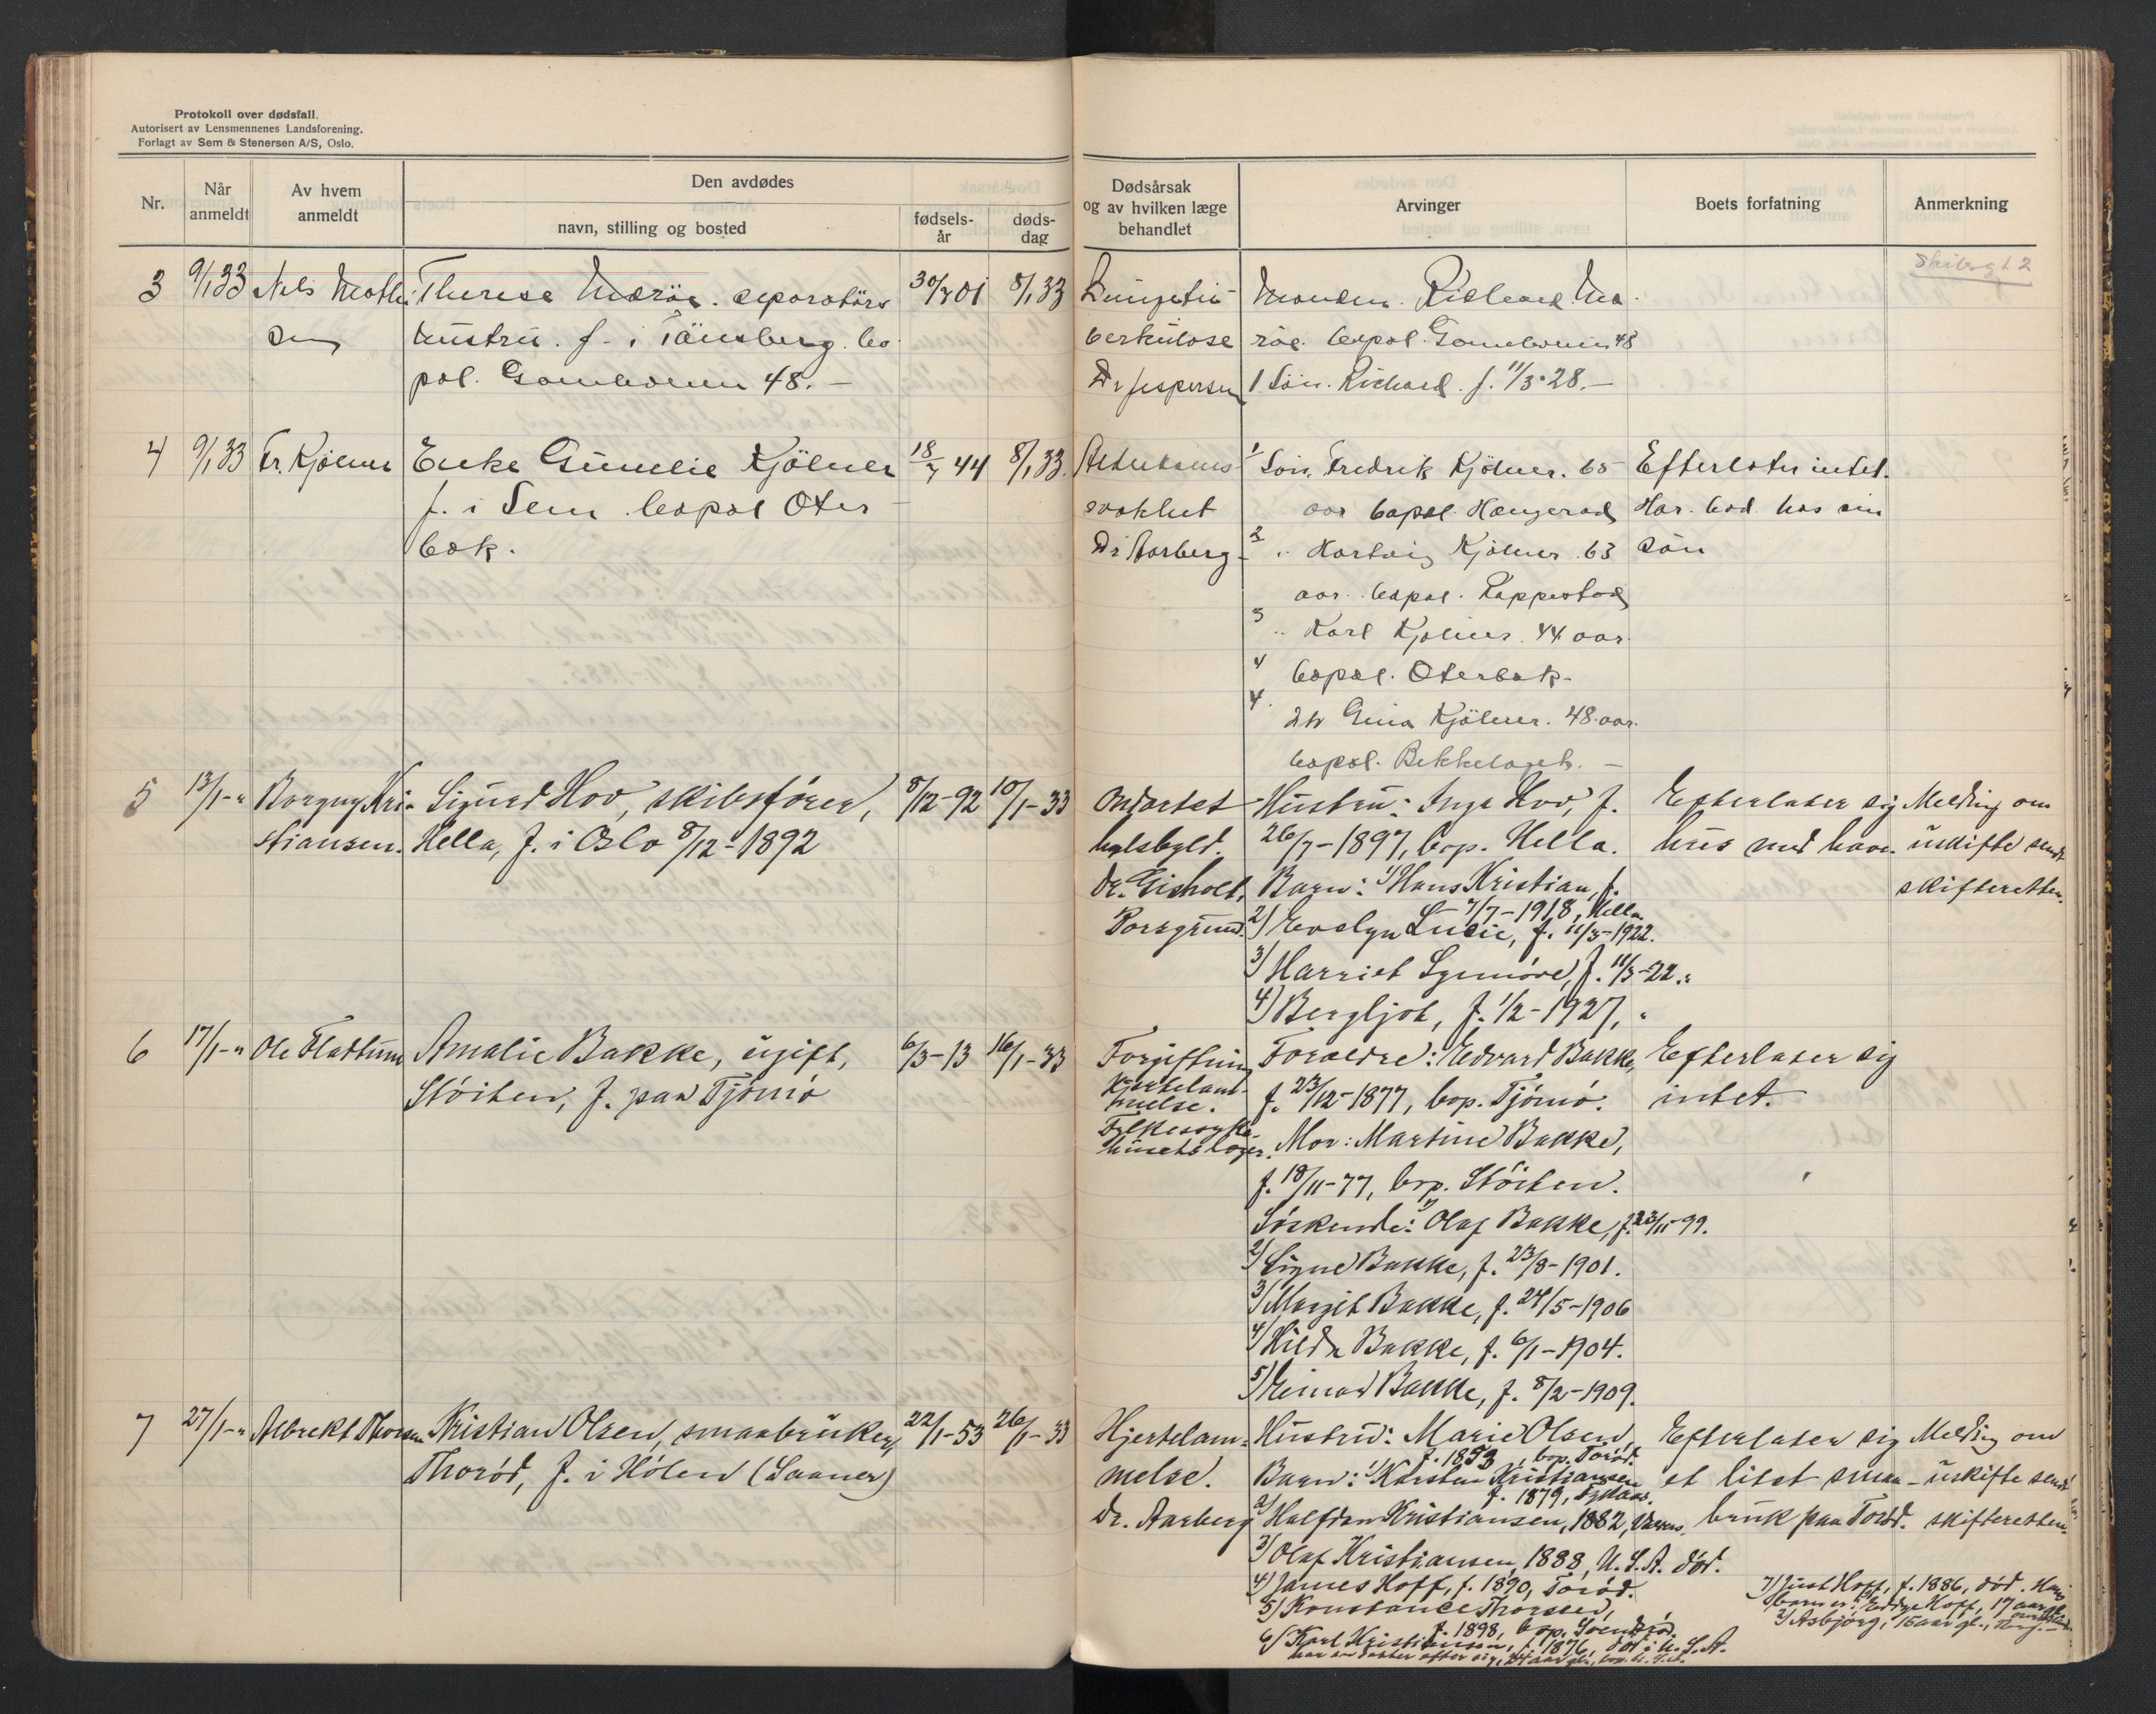 Protokoll over dødsfall.
Autorisert av Lensmennenes Landsforening.
Forlagt av Sem & Stenersen A/S, Oslo.
Nr.
Når anmeldt
Av hvem anmeldt
Den avdødes
navn, stilling og bosted
fødsels-år
døds-dag
Dødsårsak
og av hvilken læge
behandlet
Arvinger
Boets forfatning
Anmerkning
3
9/1 33
Nils
Therese
hustru. f. i Tönsberg. bo
pæl. 48. –
8/1 33
berkulose
Dr Jespersen
Manden. Richard
bopæl. 48
1 Sön. Richard. f. 11/3 28. –
4
9/1 33
Fr. Kjölner
Enke Gunelie Kjölner
f. i Sem bopæl Oter
bæk.
18/7 44
8/1 33.
Alderdoms
svakhet
Dr Aarberg
1 Sön. Fredrik Kjölner. 65
aar bopæl. Haugerød
2 " Hartvig Kjölner. 63
aar. bopæl.
3 " Karl Kjölner. 44 aar.
4 bopæl. Oterbæk.
4. dtr Gina Kjölner. 48 aar.
bopæl. Bekkelaget. –
Efterlater intet.
Har bod hos sin
sön
5
13/1 - "
Borgny Kri-
stiansen.
Sigurd Hov, skibsfører,
Hella, f. i Oslo 8/12-1892
8/12-92
10/1-33
Ondartet
halsbyld.
Dr. Gisholt,
Porsgrund.
Hustru: Inga Hov, f.
26/7-1897, bop. Hella.
Barn: 1) Hans Kristian, f.
7/7-1918, Hella.
2) Evelyn Lucie, f. 11/3-1922.
3) Harriet Synnöve, f. 11/3-22. "
4) Bergljot, f. 1/2-1927, "
Efterlater sig
hus med have.
Melding om
uskifte sendt
skifteretten.
6
17/1 - "
Ole Flattum
Amalie Bakke, ugift,
Støiten, f. paa Tjømø
6/3-13
16/1-33
Forgiftning
Hjertelam-
melse.
Fylkessyke-
husets læger.
Foreldre: Edvard Bakke,
f. 23/12-1877, bop. Tjømø.
Mor: Martine Bakke,
f. 18/11-77, bop. Støiten.
Søskende: 1) Olaf Bakke, f. 23/11-99.
2) Signe Bakke, f. 23/8-1901.
3) Margit Bakke, f. 24/5-1906
4) Hilda Bakke, f. 6/1-1904.
5) Einar Bakke, f. 8/2-1909.
Efterlater sig
intet.
7
27/1 - "
Albrekt Thorsen
Kristian Olsen, smaabruker,
Thorød, f. i Hølen (Saaner)
22/1-53
26/1-33
Hjertelam-
melse.
Dr. Aarberg
Hustru: Marie Olsen,
f. 1853, bop. Torød.
Barn: 1) Karsten Kristiansen
f. 1879,
2) Halfdan Kristiansen, 1882,
3) Olaf Kristiansen, 1888, U.S.A. død.
4) James Hoff, f. 1890, Torød.
5) Konstance Thorssen,
f. 1898, bop.
6) Karl Kristiansen, f. 1876, død i U.S.A.
har en datter efter sig, 24 aar gl., bop. U.S.A.
Efterlater sig
et litet smaa-
bruk paa Torød.
Melding om
uskifte sendt
skifteretten.
7) Just Hoff, f. 1886, død. Hans
barn er: 17 aar gl.
2) Asbjørg, 15 aar gl.,